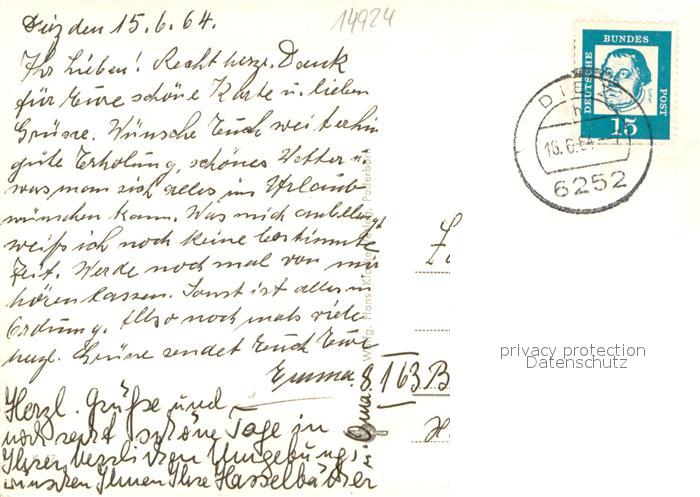 Diez den 15.6.64.
14924
Ihr Lieben! Recht herzl. Dank
für Eure schöne Karte u. lieben
Grüsse. Wünsche Euch weiterhin
gute Erholung, schönes Wetter u.
was man sich alles im Urlaub
wünschen kann. Was mich anbelangt
weiß ich noch keine bestimmte
Zeit. Werde noch mal von mir
hören lassen. Sonst ist alles in
Ordnung. Also noch mals viele
herzl. Grüsse sendet Euch Eure
Emma
Herzl. Grüße und
noch recht schöne Tage in
Ihrer herrlichen Umgebung
wünschen Ihnen Ihre Hasselbächer
DEUTSCHE BUNDES POST
15
DIEZ
15.6.64
6252
Verlag: Hans Paderborn
163 B
privacy protection
Datenschutz